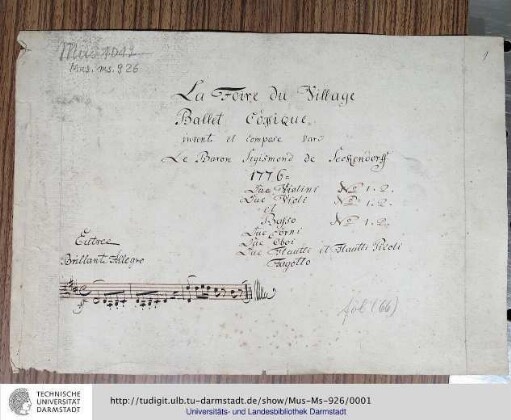 Mus 1042
Mus. ms. 926
1
La Foire du Village
Ballet Comique
invent et compose par
Le Baron Segismond de Seckendorff
1776=
Due Violini No 1. 2.
Due Viole No 1. 2.
et
Basso No 1. 2.
Due Corni
Due Oboi
Due Flautti et Flautti Picoli
Fagotto
Entree
Brillant Allegro
ff
fol (66)
TECHNISCHE
UNIVERSITÄT
DARMSTADT
http://tudigit.ulb.tu-darmstadt.de/show/Mus-Ms-926/0001
Universitäts- und Landesbibliothek Darmstadt